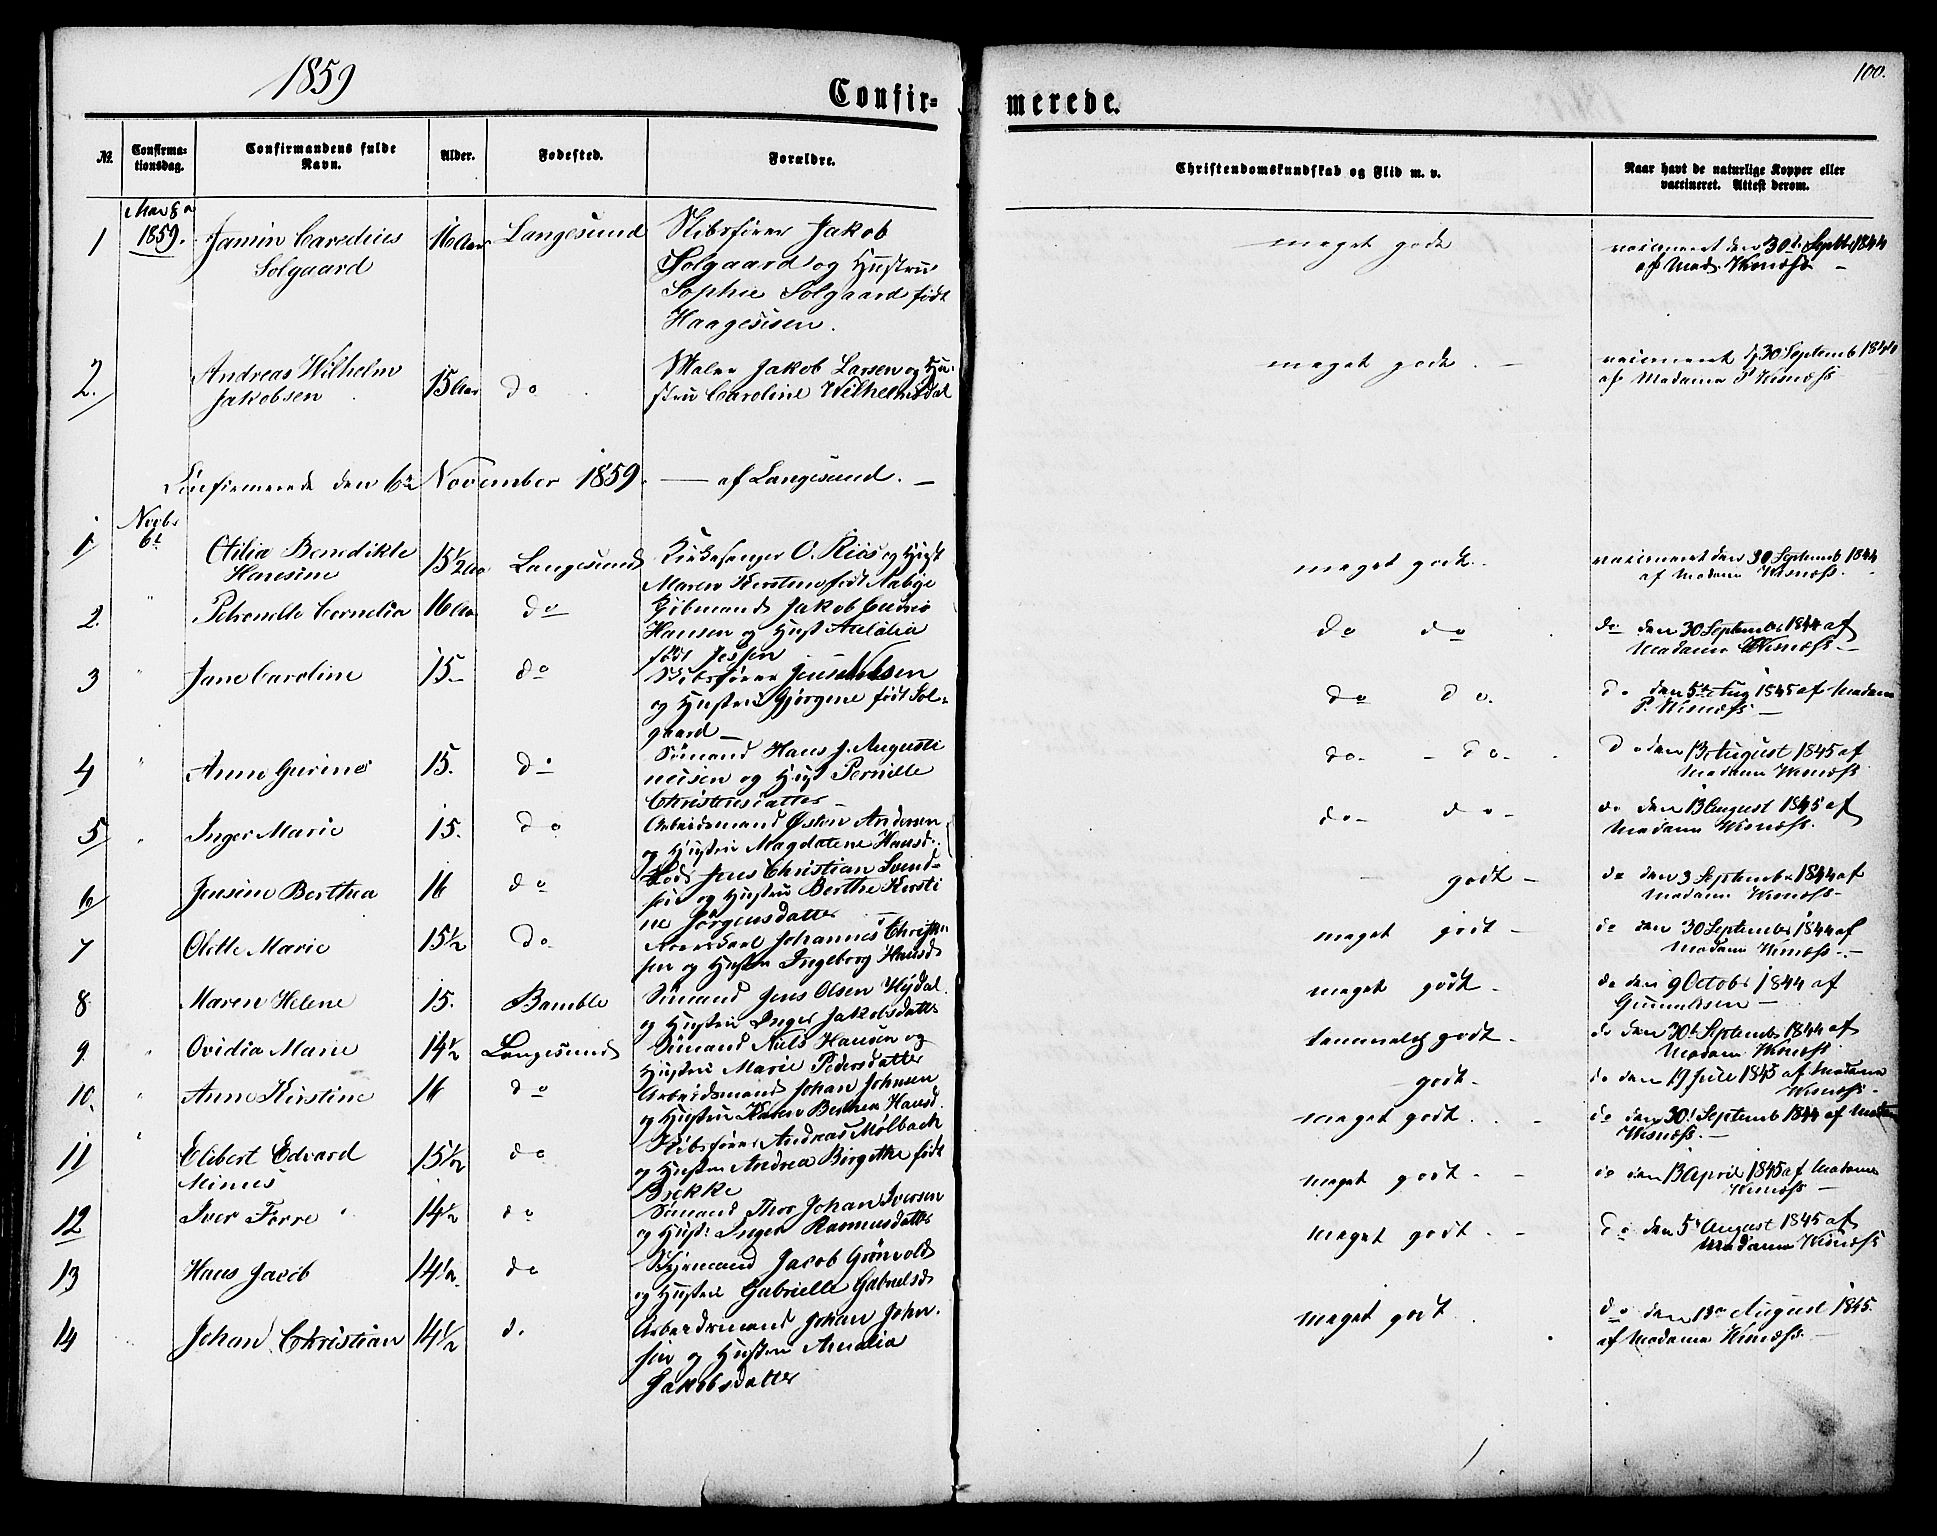 1859
100.
Confir-
merede.
№
Confirma-
tionsdag.
Confirmandens fulde
Navn.
Alder.
Fødested.
Forældre.
Christendomskundskab og Flid m. v.
Naar havt de naturlige Kopper eller
vaccineret. Attest derom.
1859.
1 Jamin Solgaard 16 Aar Langesund Skibsfører Jakob
Solgaard og Hustru
Sophie Solgaard født
meget godt
vaccineret den 30te Septbr 1844
af Mad. Wisnæss
2. Andreas Wilhelm
Jakobsen 15 Aar do
Maler Jakob Larsen og Hu-
stru Caroline
meget godt. -
vaccineret d 30 Septemb 1844
af Madame P Wisnæss
Confirmerede den 6te November 1859. - af Langesund. -
Novbr
6t
1 Otilia Benedikte
Hansine 15½ Aar Langesund Kirkesanger O. Riis og Hust
Maren Kirstine født Aabye
meget godt.
vaccineret den 30 Septemb 1844
af Madame Wisnæss.
2. " Petronelle Cornelia 16 Aar do Kjøbmand Jakob
Hansen og Hust Amalia
født Jessen
do do
do den 30 Septembr 1844 af
Madame Wisnæss. -
3 " Jane Caroline 15- do Skibsfører Jens Nilsen
og Hustru Gjørgine født Sol-
gaard -
do do.
do den 5te Aug 1845 af Madame
P. Wisnæss -
4 " Anne Gurine 15. do Sømand Hans J. Augusti
nussen og Hust Pernille
Christensdatter -
do. - do.
do den 13 August 1845 af
Madame Wisnæss
5 " Inger Marie 15. do Arbeidsmand Østen Andersen
og Hustru Magdalene Hansd.
do- do-
do den 13 August 1845 af
Madame Wisnæss.
6 Jensine Berthea 16 do Lods Jens Christian Svend-
sen og Hustru Berthe Kirsti
ne Jørgensdatter
- godt -
do den 3 Septembr 1844 af
Madame Wisnæss-
7 Olette Marie 15½ do Johannes Christen
sen og Hustru Ingeborg Hansd
meget godt -
do den 30 Septembr 1844 af
Madame Wisnæss. -
8. Maren Helene 15. Bamble Sømand Jens Olsen
og Hustru Inger Jakobsdatter
meget godt -
do den 9 Octobr 1844 af
Gunuldsen -
9. " Ovidia Marie 14½ Langesund Sømand Niels Hansen og
Hustru Marie Pedersdatter
temmelig godt -
do den 30t Septembr 1844 af
Madame Wisnæss
10. " Anne Kirstine 16 do Arbeidsmand Johan Johnsen
og Hustru Karen Berthea Hansd.
godt -
do den 19 Julie 1845 af Madame
Wisnæss. -
11 " Elibert Edvard
Minus 15½ do Skibsfører Andreas Mølback
og Hustru Andrea Birgitte født
Bække
meget godt . -
do den 30t Septemb 1844 af Madam
Wisnæss. -
12 Iver Torre 14½ do Sømand Thor Johan Iversen
og Hustr: Inger Rasmusdatter
meget godt . -
do den 13 April 1845 af Madame
Wisnæss -
13 Hans Jacob 14½. do Jacob Grønvold
og Hustru Gabrielle Gabrielsd
meget godt . -
do den 5t August 1845 af
Madame Wisnæss
14 Johan Christian 14½ d. Arbeidsmand Johan John-
sen og Hustru Amalia
Jakobsdatter
meget godt .
do den 13 August 1845.
af Madame Wisnæss. -